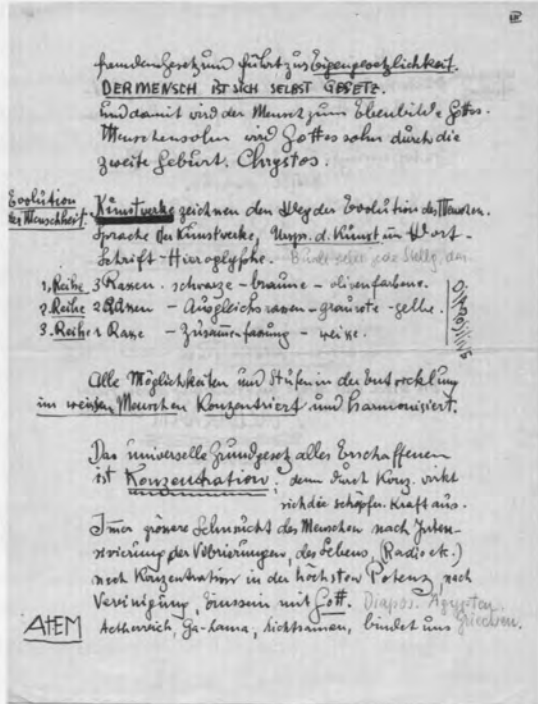 III
fremdengesetzum führt zur Eigengesetzlichkeit.
DER MENSCH IST SICH SELBST GESETZ.
und damit wird der Mensch zum Ebenbilde Gottes.
Menschensohn wird Gottessohn durch die
zweite Geburt. Chrystos.
Evolution
der Menschheit.
Kunstwerke zeichnen den Weg der Evolution des Menschen.
Sprache der Kunstwerke, Urspr. d. Kunst im Wort-
Schrift-Hieroglyphe.
1. Reihe 3 Rassen. schwarze - braune - olivenfarbene.
2. Reihe 2 Rassen - Ausgleichsrassen - graurote - gelbe.
3. Reihe 1 Rasse - Zusammenfassung - weisse.
Alle Möglichkeiten und Stufen in der Entwicklung
im weissen Menschen Konzentriert und harmonisiert.
Das universelle Grundgesetz alles Erschaffenen
ist Konzentration; denn durch Konz. wirkt
sich die schöpfer. Kraft aus.
Immer grössere Sehnsucht des Menschen nach Inten-
sivierung der Vibrierungen, des Lebens, (Radio etc.)
nach Konzentration in der höchsten Potenz, nach
Vereinigung, Einssein mit Gott. Diapos. Ägypten.
Griechen.
ATEM Aetherreich, Ga-Lama, bindet uns